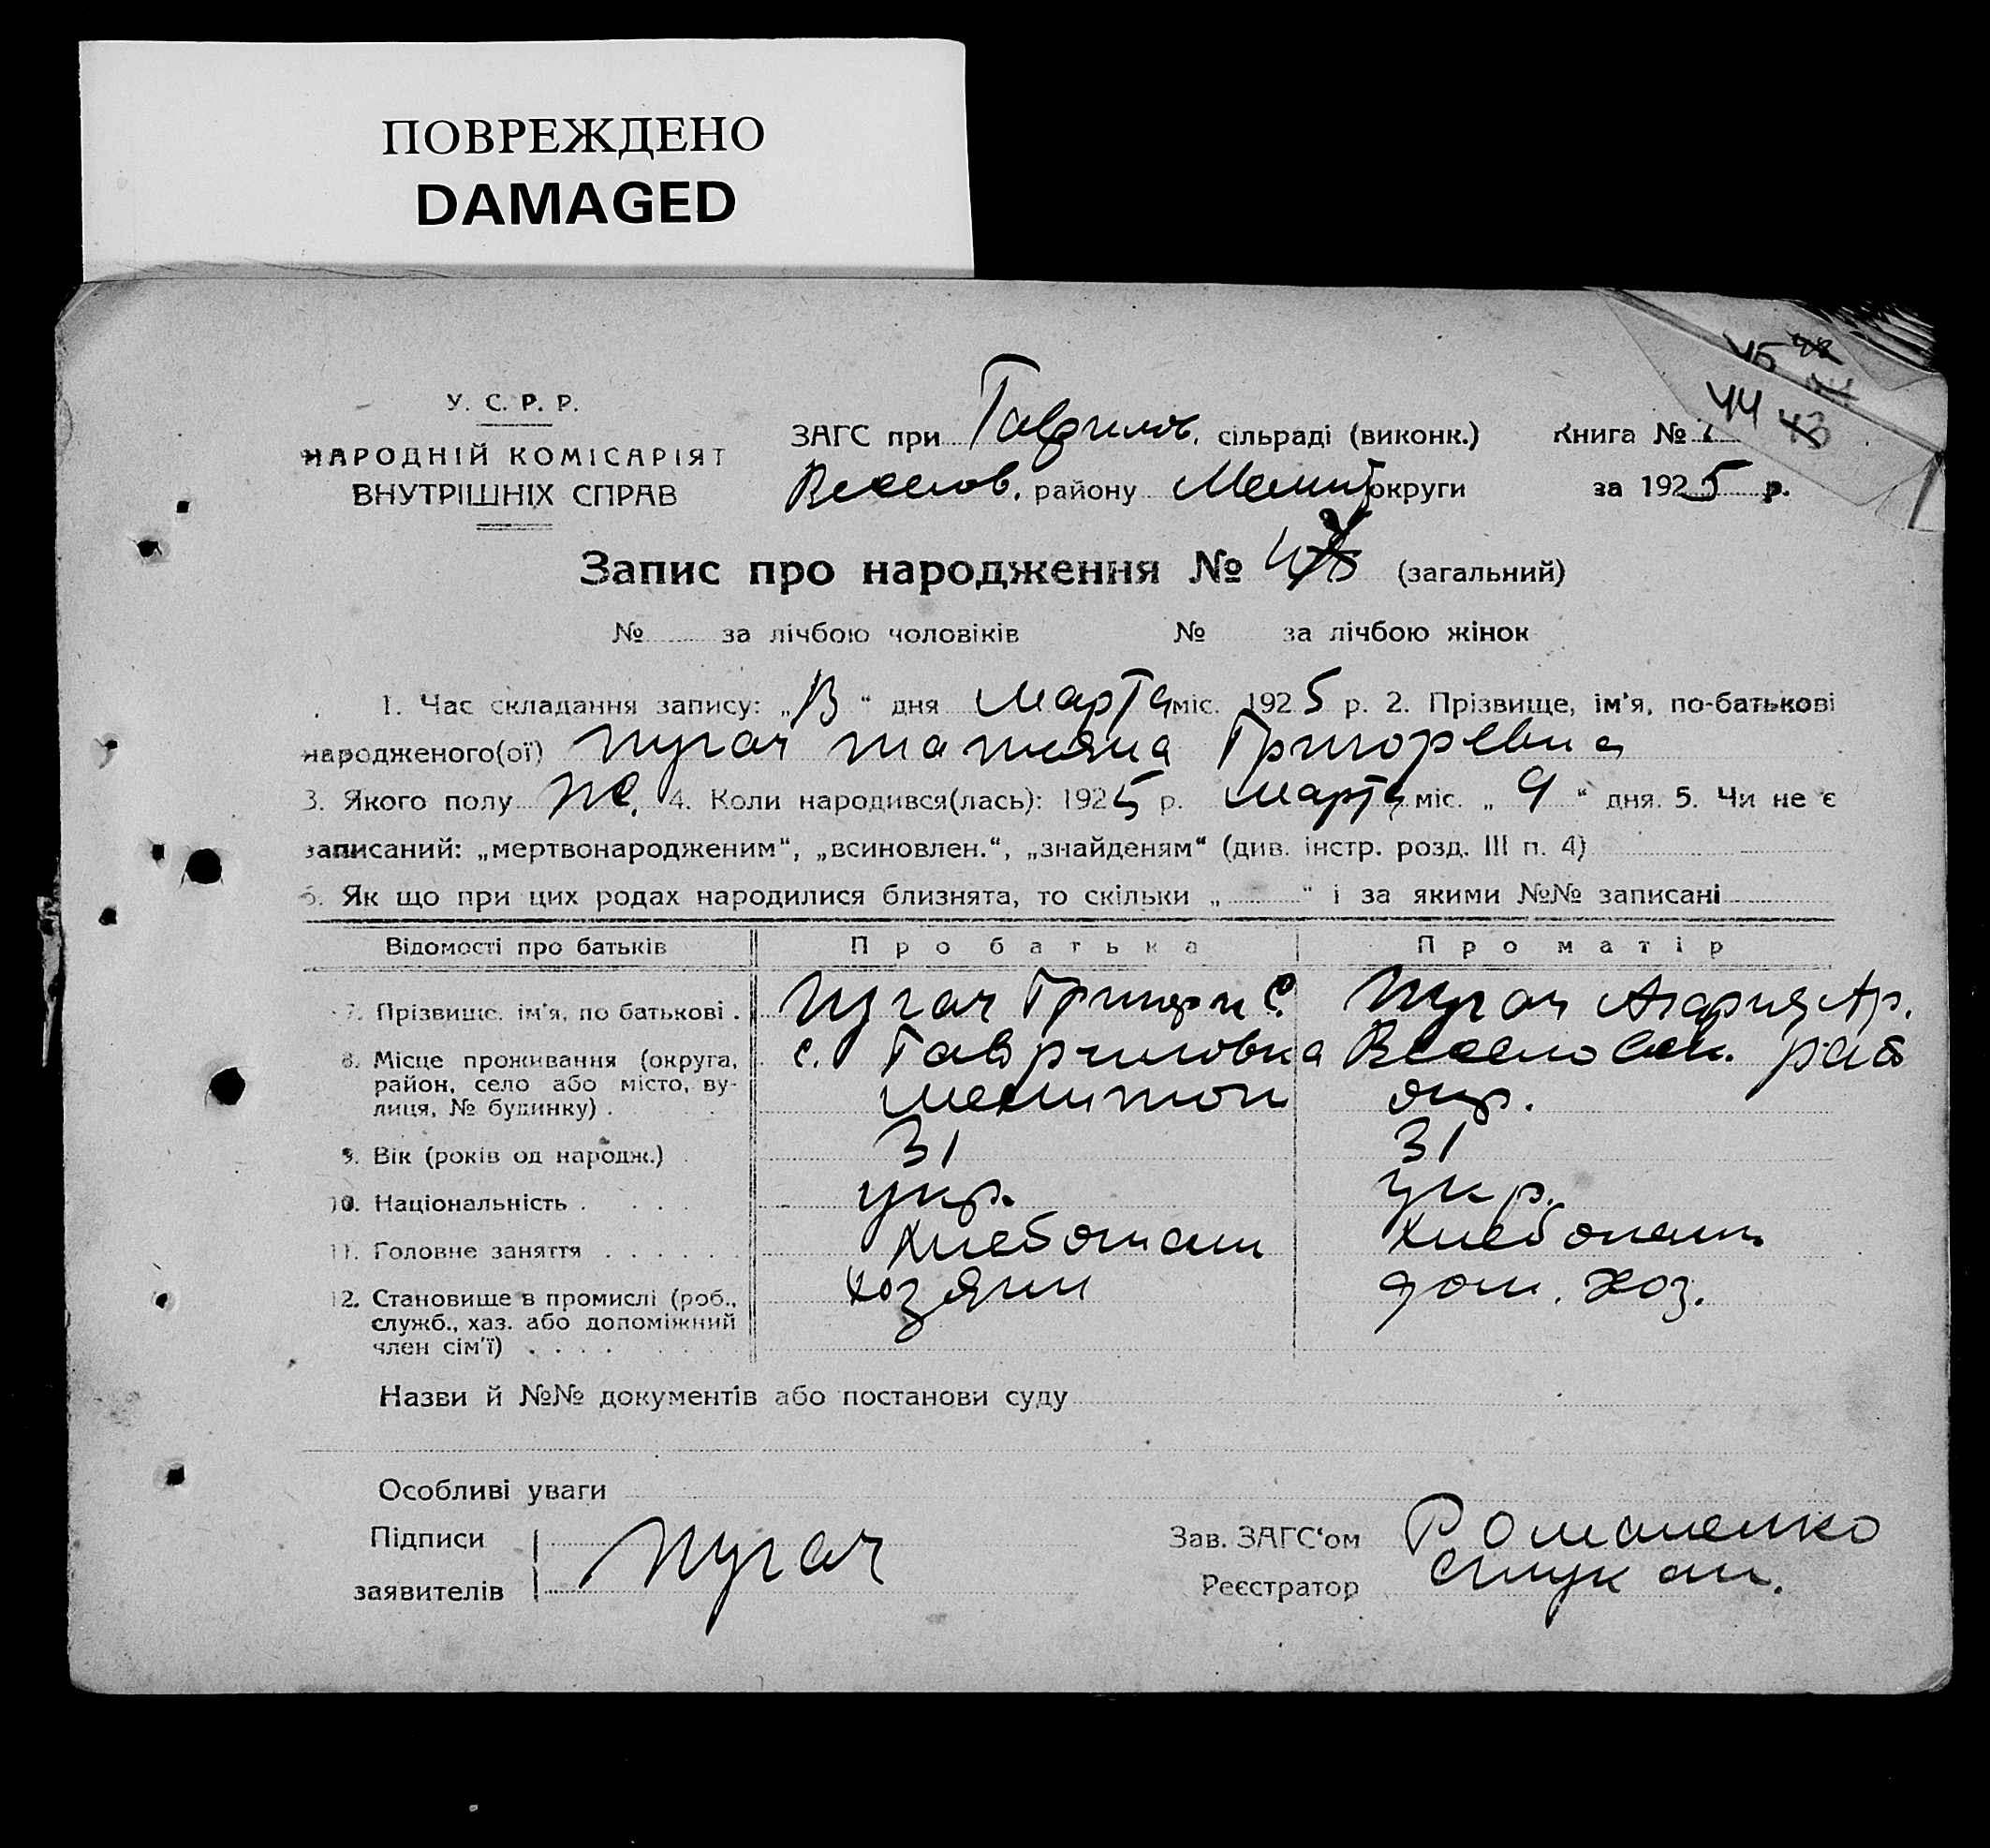 ПОВРЕЖДЕНО
DAMAGED
45
44 43
У. С. Р. Р.
НАРОДНІЙ КОМІСАРІЯТ
ВНУТРІШНІХ СПРАВ
ЗАГС при Гаврилов. сільраді (виконк.) Книга №
Веселов. району Мелит округи за 1925 р.
Запис про народження № (загальний)
№ за лічбою чоловіків № за лічбою жінок
1. Час складання запису: „13“ дня Марта міс. 1925 р. 2. Прізвище, ім'я, по-батькові
народженого(ої) Пугач Татьяна Григоревна
3. Якого полу же. 4. Коли народився(лась): 1925 р. Марта міс. „9“ дня. 5. Чи не є
записаний: „мертвонародженим“, „всиновлен.“, „знайденям“ (див. інстр. розд. III п. 4)
6. Як що при цих родах народилися близнята, то скільки „ “ і за якими №№ записані
Відомості про батьків Про батька Про матір
7. Прізвище, ім'я, по батькові . Пугач Григори С. Пугач Ар.
8. Місце проживання (округа, с. Гавриловка Веселовск. рай
район, село або місто, ву-
лиця, № будинку) . Мелитоп окр.
9. Вік (років од народж.) . 31 31
10. Національність . . . . укр. укр.
11. Головне заняття . . . . . . Хлебопаш Хлебопаш.
12. Становище в промислі (роб., хозяин дом. хоз.
служб., хаз. або допоміжний
член сім'ї) . . . .
Назви й №№ документів або постанови суду
Особливі уваги
Підписи
заявителів Пугач
Зав. ЗАГС'ом Романенко
Реєстратор